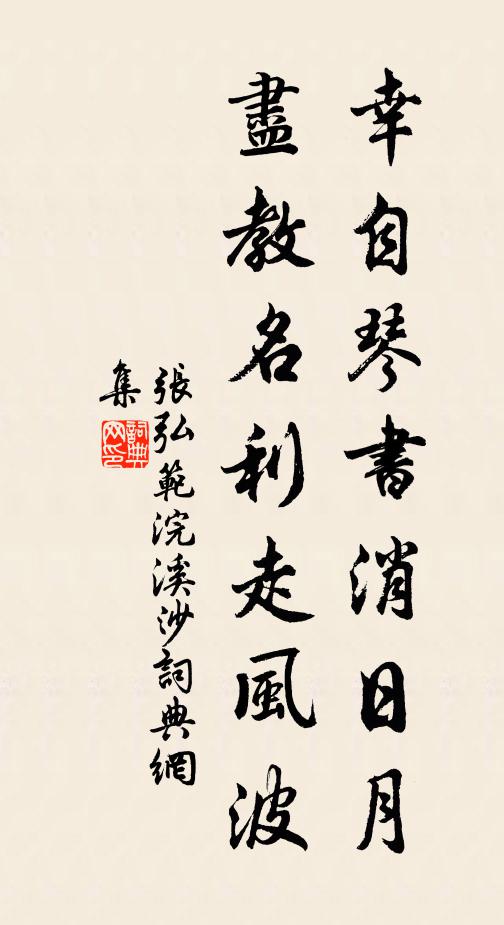 幸自琴書消日月
盡教名利走風波
張弘範浣溪沙詞典網
集
詞典
网印